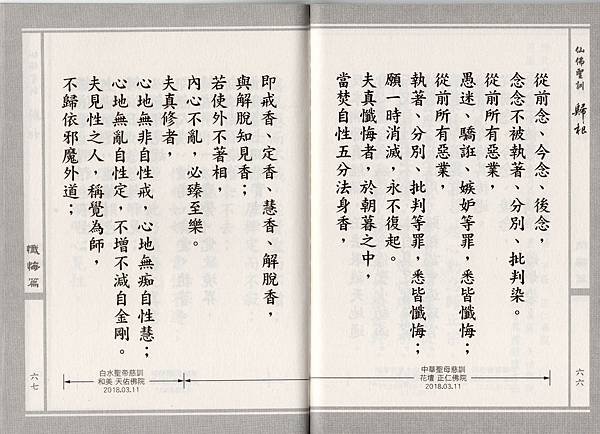 仙佛聖訓 歸根
從前念、今念、後念，
念念不被執著、分別、批判染。
從前所有惡業，
愚迷、驕誑、嫉妒等罪，悉皆懺悔；
從前所有惡業，
執著、分別、批判等罪，悉皆懺悔；
願一時消滅，永不復起。
夫真懺悔者，於朝暮之中，
當焚自性五分法身香，
六六
中華聖母慈訓
花壇 正仁佛院
2018.03.11
即戒香、定香、慧香、解脫香，
與解脫知見香；
若使外不著相，
內心不亂，必臻至樂。
夫真修者，
心地無非自性戒，心地無痴自性慧；
心地無亂自性定，不增不減自金剛。
夫見性之人，稱覺為師，
不歸依邪魔外道；
懺悔篇
六七
白水聖帝慈訓
和美 天佑佛院
2018.03.11